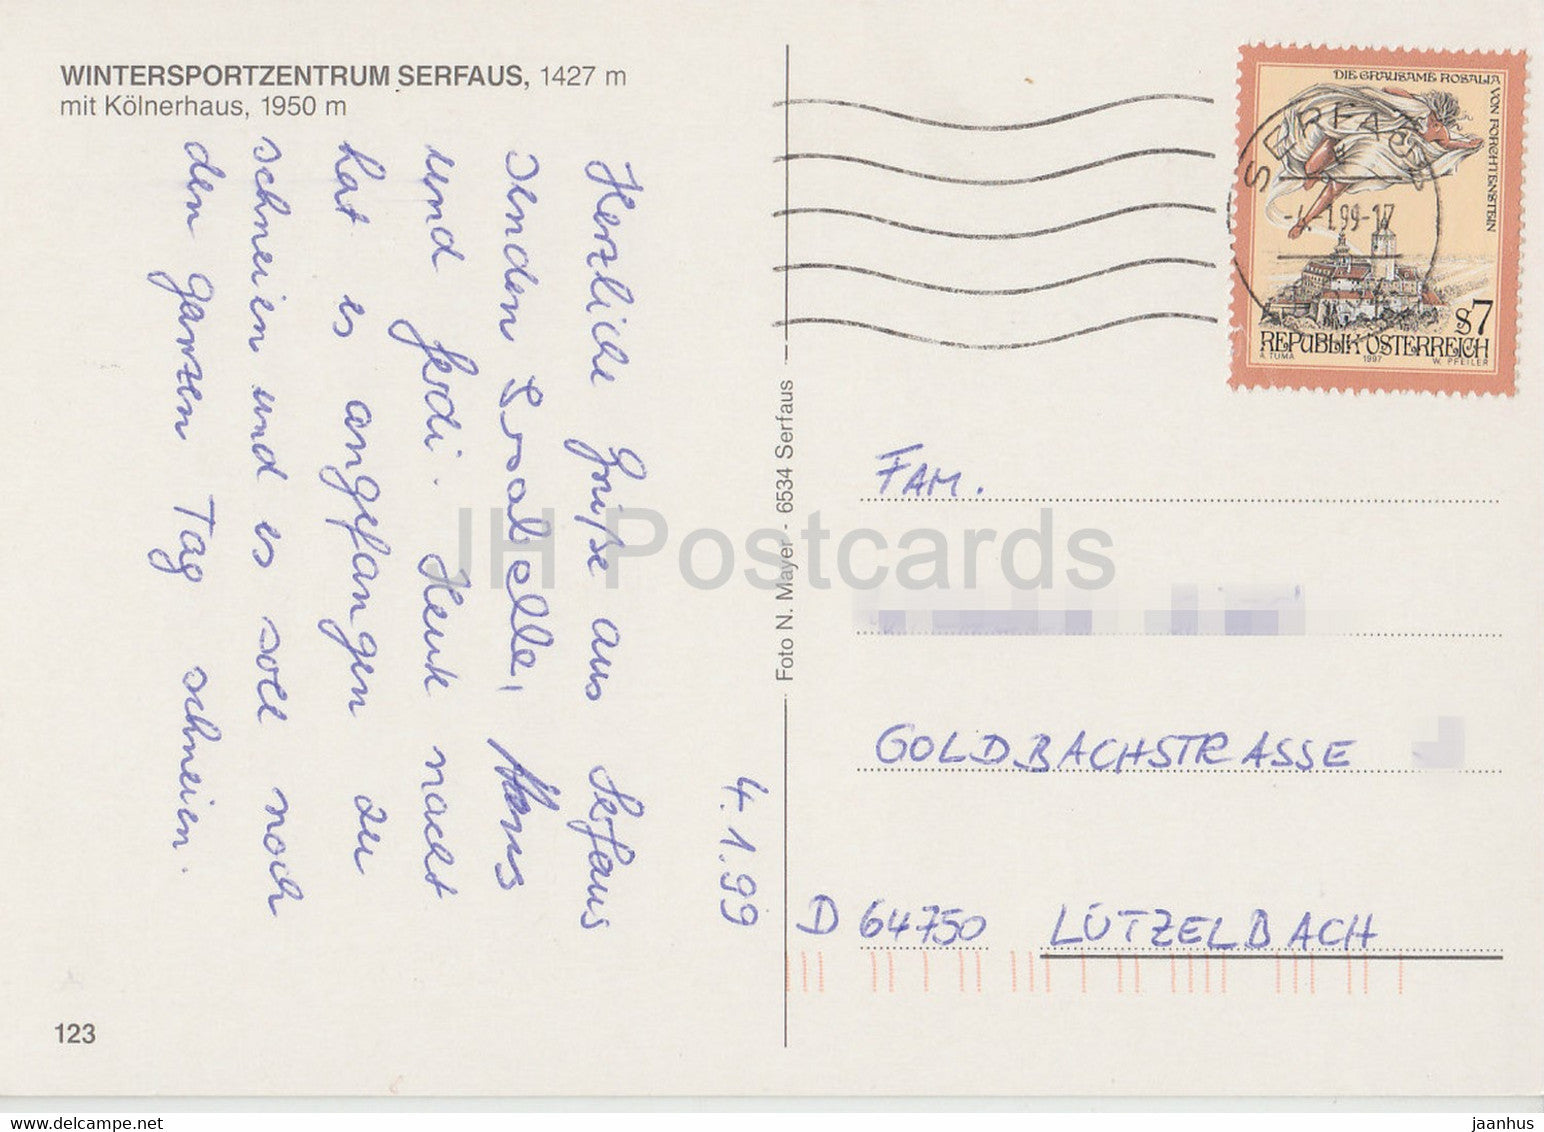 WINTERSPORTZENTRUM SERFAUS, 1427 m
mit Kölnerhaus, 1950 m
4.1.99
Herzliche Grüße aus Serfaus
senden Isabelle, Hans
und Gerdi. Heute nacht
hat es angefangen zu
schneien und es soll noch
den ganzen Tag schneien.
123
Foto N. Mayer - 6534 Serfaus
DIE GRAUSAME ROSALIA VON FORCHTENSTEIN
S7
REPUBLIK ÖSTERREICH
A. TUMA 1997 W. PFEILER
SERFAUS
-4.-1.99-17
FAM.
GOLDBACHSTRASSE
D 64750 LÜTZELBACH
JH Postcards
jaanhus